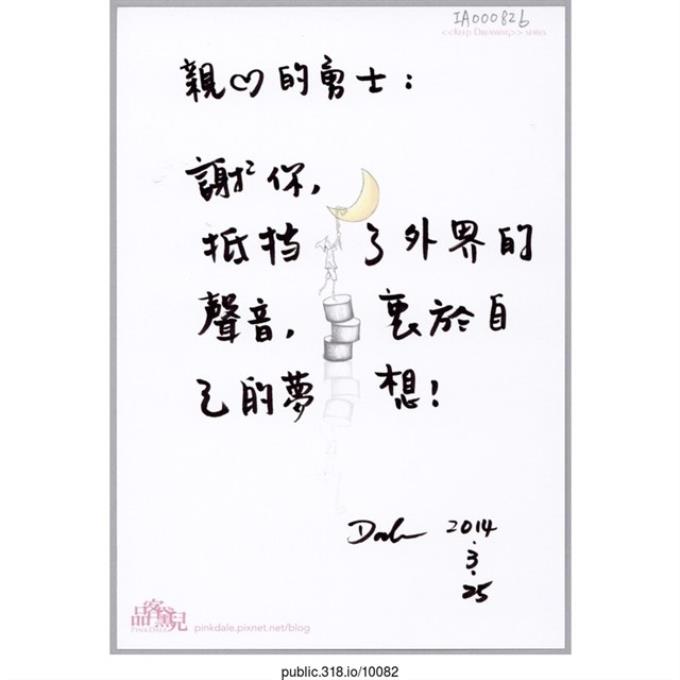 IA000826
<<KEEP DREAMING>> SERIES
親♡的勇士：
謝²你，
抵擋了外界的
聲音，衷於自
己的夢想！
2014
.3.
25
品客黛兒
PINKDALE
pinkdale.pixnet.net/blog
public.318.io/10082